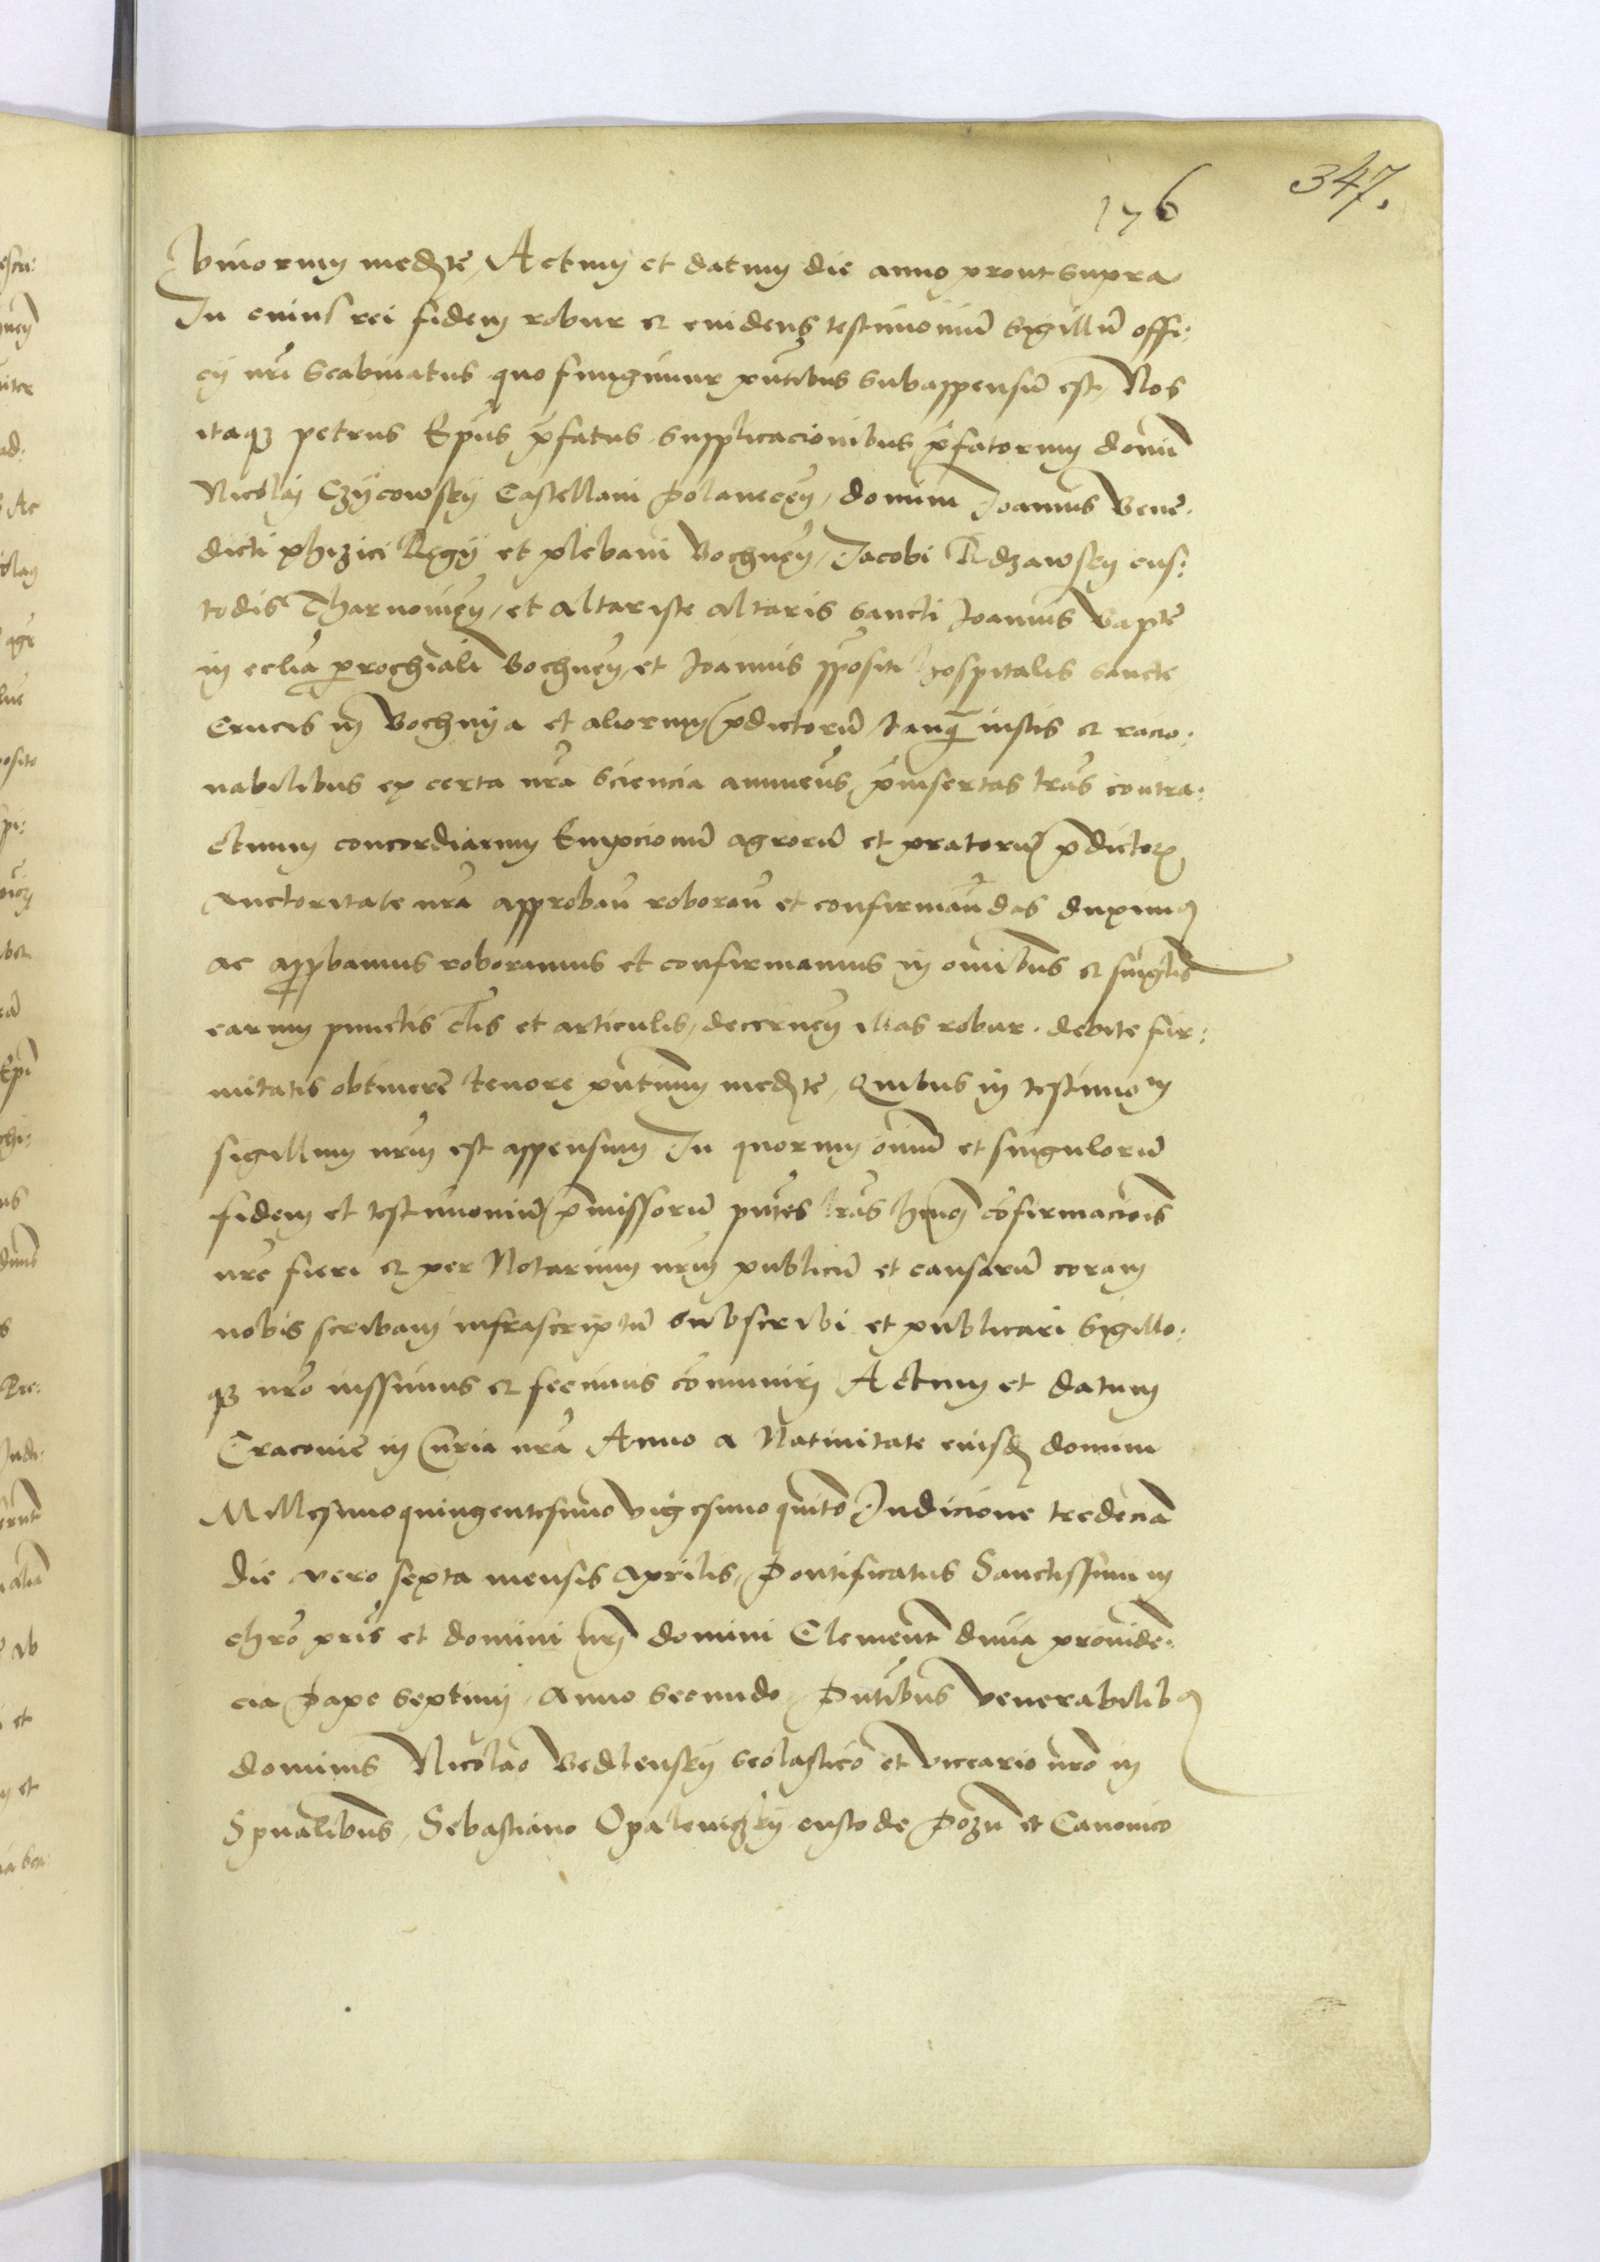 347.
176
binorum med͞te, Actum et datum die anno prout supra
In cuius rei fidem robur et euidens testimoniũ Sigillũ offi:
cÿ nr̃i Scabinatus quo fungimur pñtibus subappensũ est, Nos
itaqȝ petrus Ep̃us p̃fatus supplicacionibus p̃fatorum domĩ
Nicolai Czÿcowskÿ Castellani Polanecen̄, domini Joannis Bene:
dicti phizici Regÿ et plebani Bochnen̄, Jacobi Rdzawsky cus:
todis Tharnouien̄, et altariste altaris sancti Joannis Bap̃te
in ecl̃ia parochiali Bochnen̄, et Joannis p̃positi hospitalis sancte
Crucis in Bochnÿa et aliorum p̃dictorũ, tanq̃ iustis et racio:
nabilibus ex certa nr̃a sciencia annuen̄s, p̃insertas lr̃as contra:
ctuum concordiarum Empcionũ agrorũ et pratorũ p̃dictorꝝ
auctoritate nr̃a approban̄ roboran̄ et confirman̄das duximꝰ
ac approbamus roboramus et confirmamus in omĩbus et singulis
earum punctis cl̃is et articulis, decernen̄ illas robur debite fir:
mitatis obtinere tenore pñtium med͞te, Quibus in testimoͫ
sigillum nr̃um est appensum In quorum oĩum et singulorũ
fidem et testimoniũ p̃missorũ pñtes lr̃as hm̃oi cõfirmacionis
nr̃e fieri et per Notarium nr̃um publicũ et causarũ coram
nobis scribam infrascriptũ subscribi et publicari Sigillo:
qȝ nr̃o iussimus et fecimus cõmuniri Actum et datum
Cracouie in Curia nr̃a Anno a Natiuitate eiusd̃ domini
Millesimoquingentesimo vigesimo quinto Indicione tredecĩa
die vero sexta mensis Aprilis, Pontificatus Sanctissimi in
chr̃o pr̃is et domini nr̃i domini Clement̃ diuĩa prouiden:
cia Pape septimi, Anno secundo, Pñtibus venerabilibꝰ
dominis Nicolao Bedlenskÿ scolastico et vicario nr̃o in
Sp̃ualibus, Sebastiano Opaleniczkÿ custode Pozn̄ et Canonico